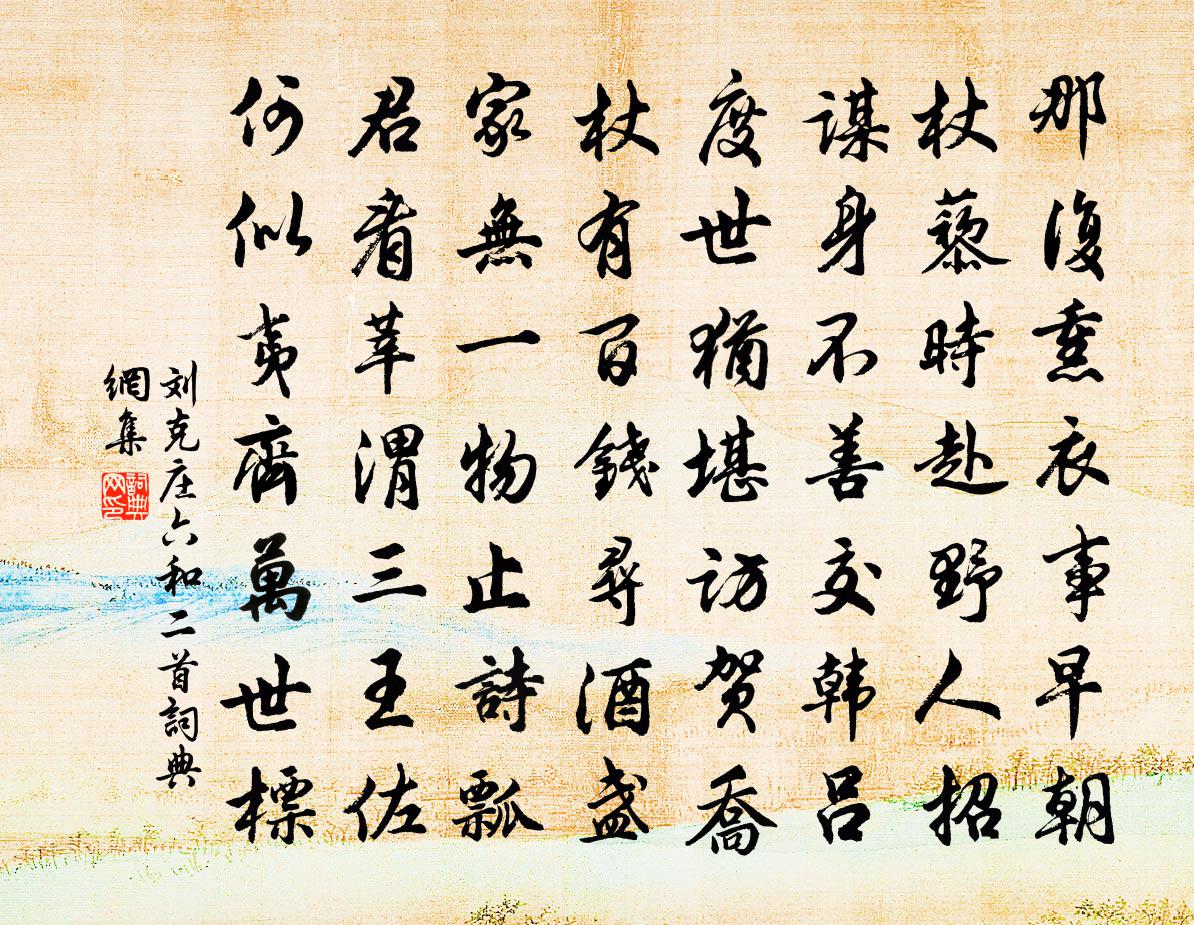 那復熏衣事早朝
杖藜時赴野人招
謀身不善交韩吕
度世猶堪訪贺喬
杖有百錢尋酒盏
家無一物止詩瓢
君看莘渭三王佐
何似夷齊萬世標
刘克庄六和二首詞典
網集
詞典网印